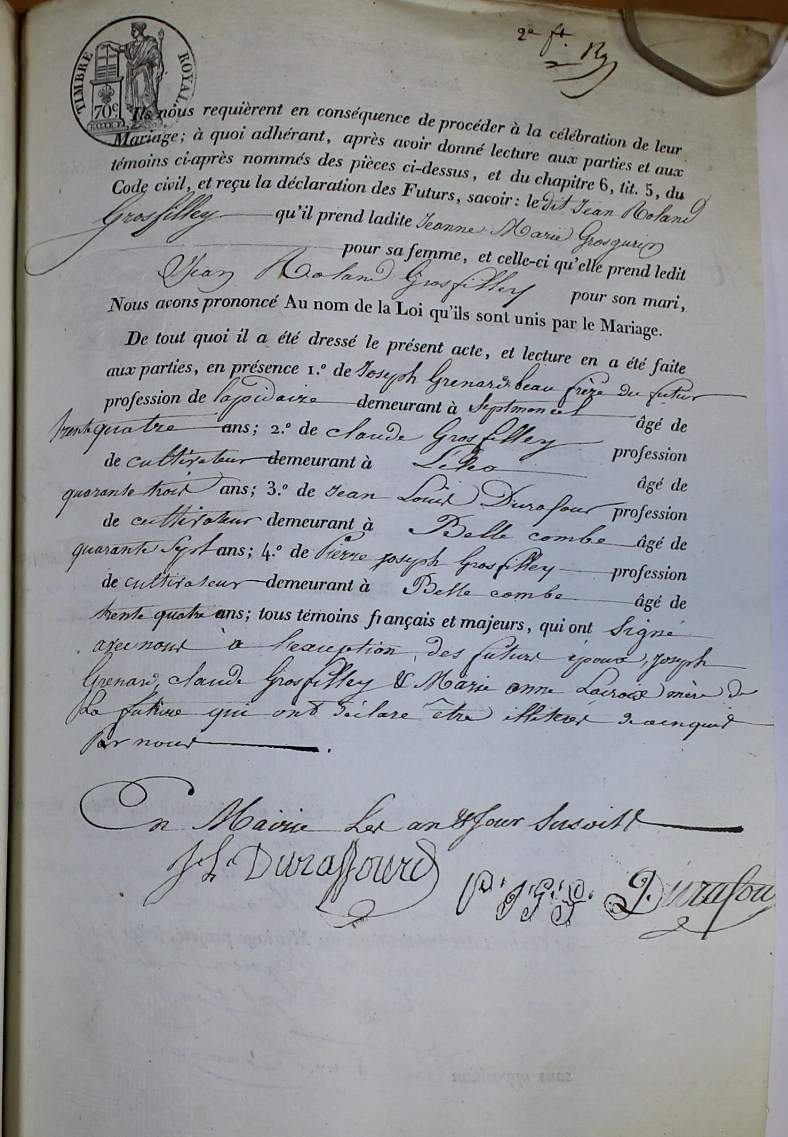 2e ft.
TIMBRE ROYAL
70c
Ils nous requièrent en conséquence de procéder à la célébration de leur
Mariage; à quoi adhérant, après avoir donné lecture aux parties et aux
témoins ci-après nommés des pièces ci-dessus, et du chapitre 6, tit. 5, du
Code civil, et reçu la déclaration des Futurs, savoir: le dit Jean Roland
Grosfilley qu'il prend ladite Jeanne Marie Grosgurin
pour sa femme, et celle-ci qu'elle prend ledit
Jean Roland Grosfilley pour son mari,
Nous avons prononcé Au nom de la Loi qu'ils sont unis par le Mariage.
De tout quoi il a été dressé le présent acte, et lecture en a été faite
aux parties, en présence 1.º de Joseph Grenard beau frère du futur
profession de lapidaire demeurant à Septmoncel âgé de
trente quatre ans; 2.º de Claude Grosfilley profession
de cultivateur demeurant à âgé de
quarante trois ans; 3.º de Jean Louis Durafour profession
de cultivateur demeurant à Belle combe âgé de
quarante sept ans; 4.º de Pierre joseph Grosfilley profession
de cultivateur demeurant à Belle combe âgé de
trente quatre ans; tous témoins français et majeurs, qui ont signé
avec nous à l'exception des futurs époux, joseph
Grenard, claude Grosfilley & Marie anne Lacroix mère de
la future qui ont déclaré être illitérés de ce enquis
par nous.
En Mairie les an & jour susdits
J L Duraffourd P. J. G.F. Durafou